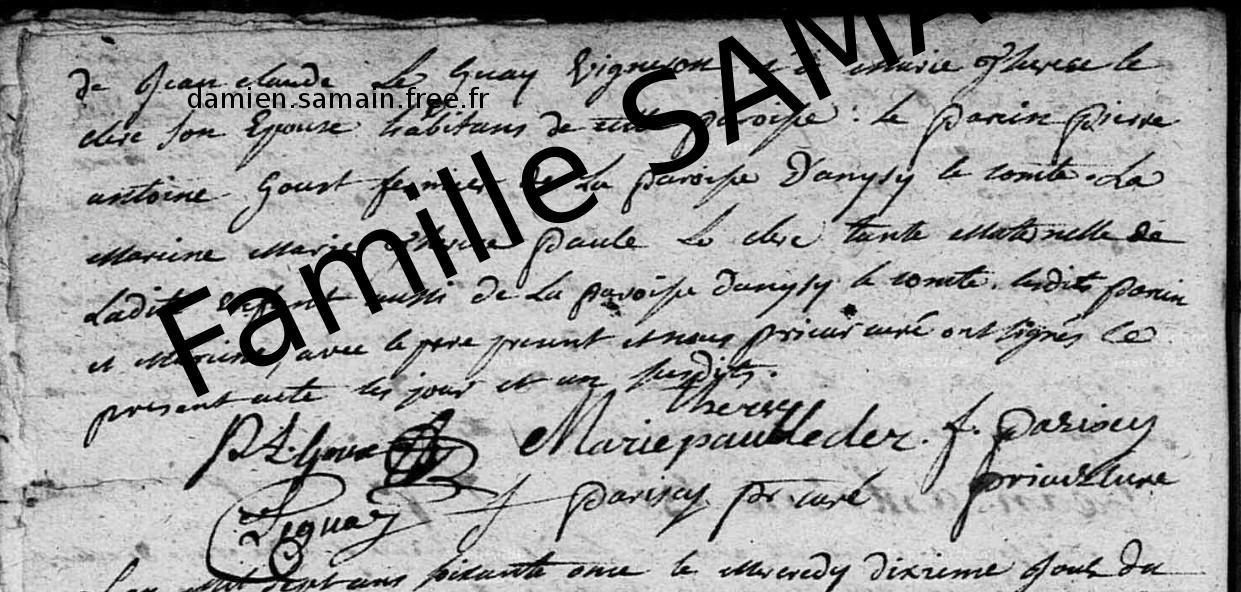 de Jean Claude Le Guay Vigneron et de Marie Therese le
clerc son Epouse habitans de cette paroisse : le parin pierre
antoine Goust fermier de La paroisse D'anysy le comte. La
Mareine Marie Therese paule Le clerc tante Maternelle de
Ladite Enfant aussi de La paroisse d'anysy le comte. lesdits parin
et Mareine, avec le pere present et nous prieur curé ont signés le
present acte les jour et an susdits.
therese
Mariepaulleclerc. f. parisey
prieur Cure
Leguay f parisey pr curé
L'an Mil sept cens soixante onze le Mercredy dixieme Jour du
Famille SAMA
damien.samain.free.fr